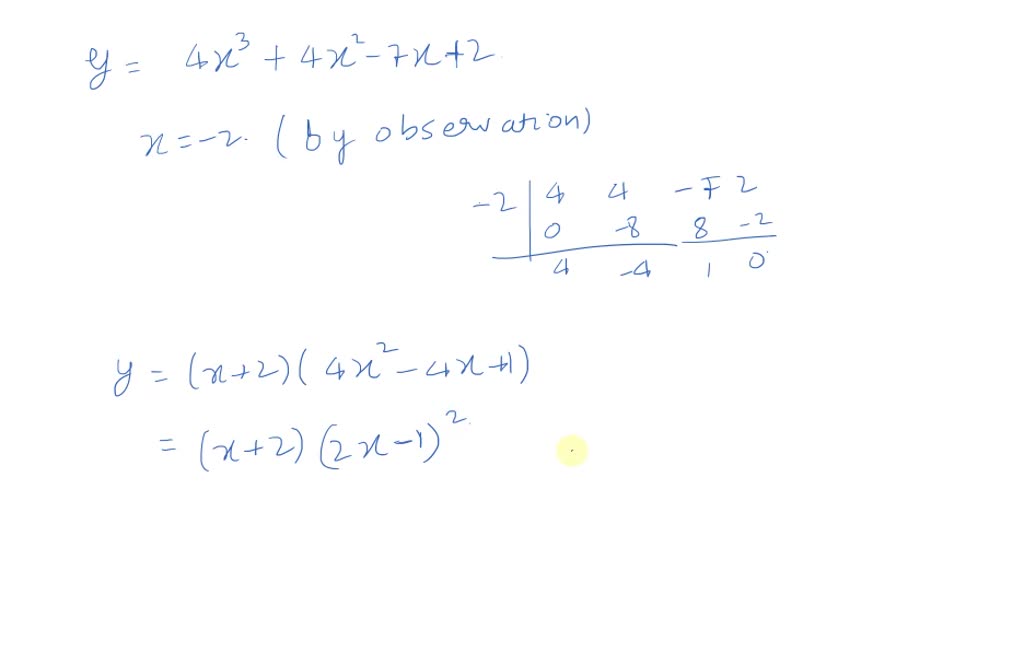 y = 4x³ + 4x² - 7x + 2.
x = -2. (by observation)
-2 | 4 4 -7 2
0 -8 8 -2
4 -4 1 0
y = (x+2)(4x² - 4x + 1)
= (x+2)(2x-1)².